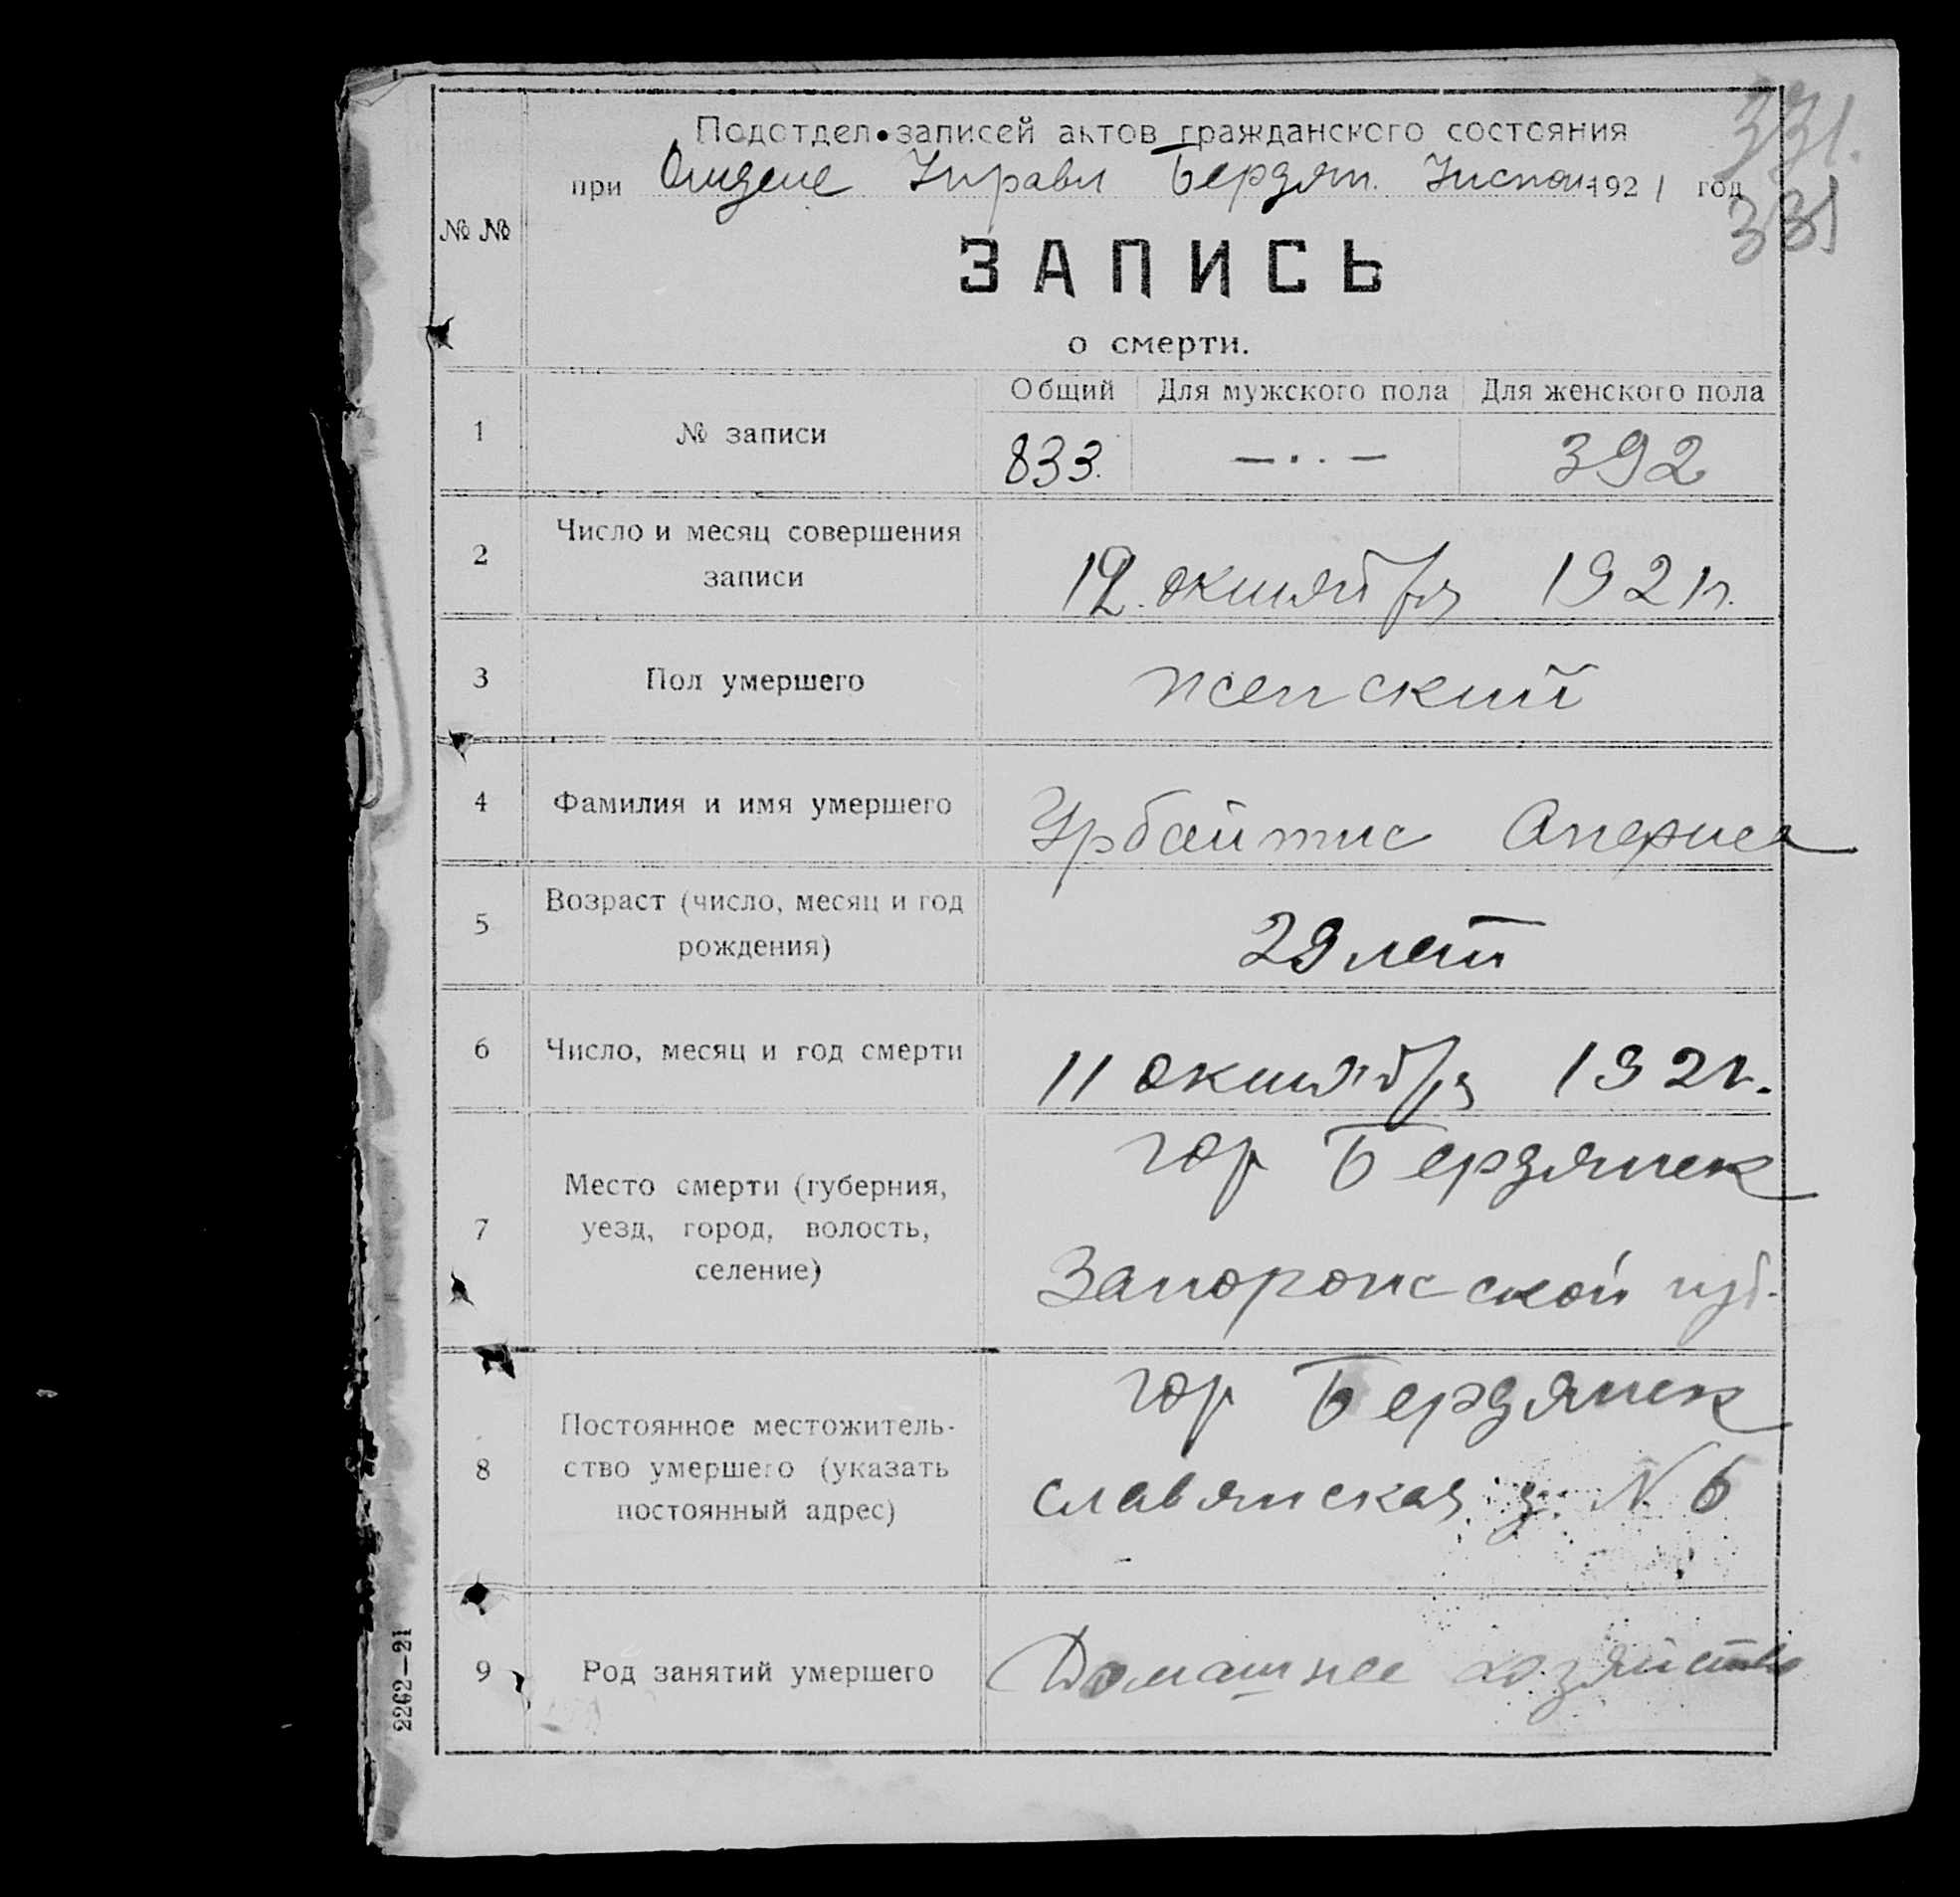 331.
331
Подотдел записей актов гражданского состояния
при Отделе Управл Бердян. Исполк 1921 год
№ №
ЗАПИСЬ
о смерти.
Общий Для мужского пола Для женского пола
1 № записи 833. — · · — 392
2 Число и месяц совершения
записи
12. октября 1921г.
3 Пол умершего женский
4 Фамилия и имя умершего Урбайтис
5 Возраст (число, месяц и год
рождения)
29 лет
6 Число, месяц и год смерти 11 октября 1921г.
7 Место смерти (губерния,
уезд, город, волость,
селение)
гор Бердянск
Запорожской губ.
8 Постоянное местожитель-
ство умершего (указать
постоянный адрес)
гор Бердянск
Славянская д. № 6
9 Род занятий умершего Домашнее хозяйство
2262—21